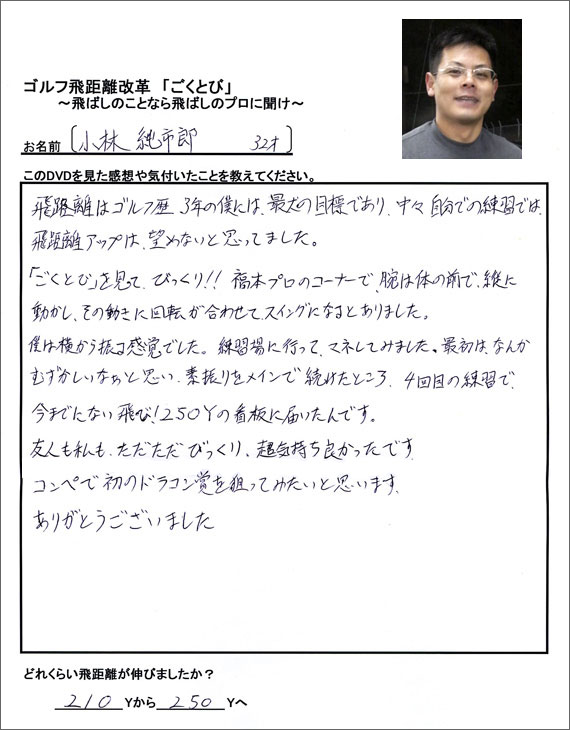 ゴルフ飛距離改革 「ごくとび」
～飛ばしのことなら飛ばしのプロに聞け～
お名前 〔小林 純市郎 32才〕
このDVDを見た感想や気付いたことを教えてください。
飛距離はゴルフ歴 3年の僕には、最大の目標であり、中々 自分での練習では、
飛距離アップは、望めないと思ってました。
「ごくとび」を見て、びっくり!! 福本プロのコーナーで、腕は体の前で、縦に
動かし、その動きに回転が合わせて、スイングになるとありました。
僕は横から振る感覚でした。練習場に行って、マネしてみました。最初は、なんか
むずかしいなぁと思い、素振りをメインで続けたところ、4回目の練習で、
今までにない飛び!250Yの看板に届いたんです。
友人も私も、ただただびっくり、超気持ち良かったです
コンペで初のドラコン賞を狙ってみたいと思います。
ありがとうございました
どれくらい飛距離が伸びましたか？
210 Yから 250 Yへ